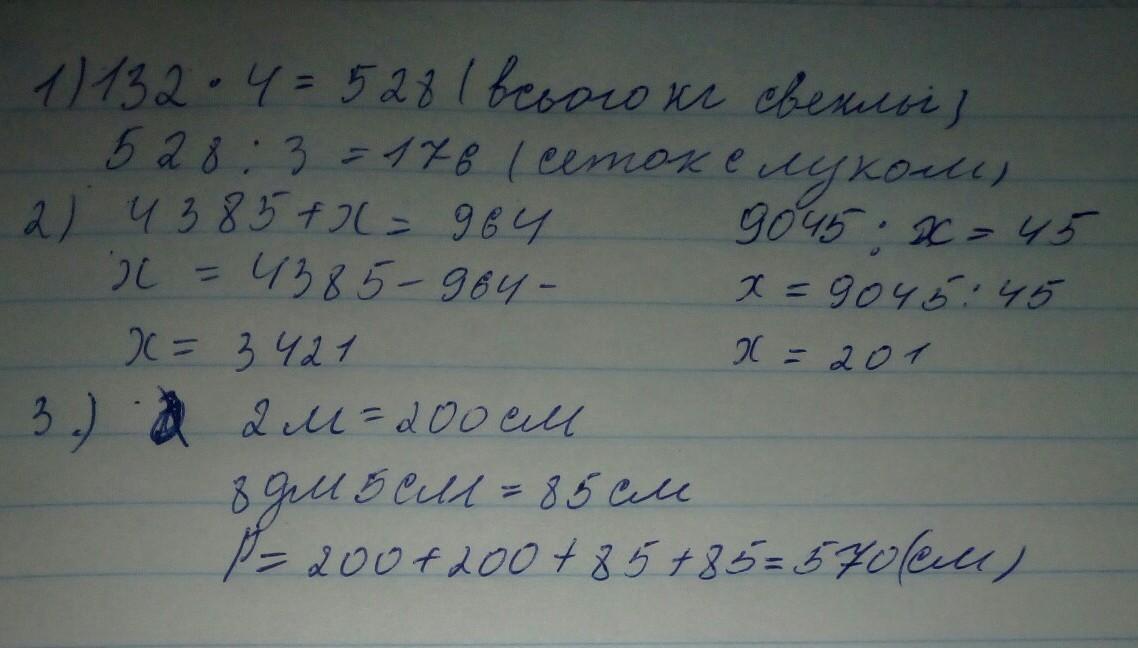 1) 132 · 4 = 528 (всього кг свеклы)
528 : 3 = 176 (сеток с луком)
2) 4385 + x = 964
x = 4385 - 964 -
x = 3421
9045 : x = 45
x = 9045 : 45
x = 201
3.) 2 м = 200 см
8 дм 5 см = 85 см
P = 200 + 200 + 85 + 85 = 570 (см)